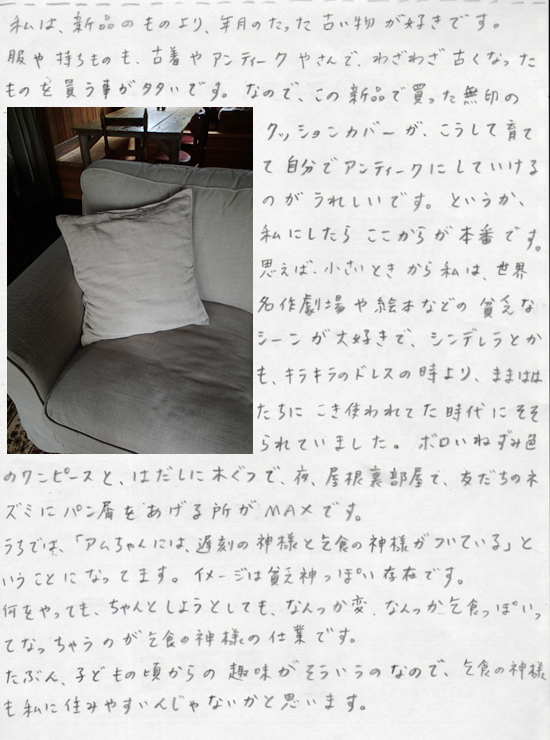 私は、新品のものより、年月のたった古い物が好きです。
服や持ちものも、古着やアンティークやさんで、わざわざ古くなった
ものを買う事が多いです。なので、この新品で買った無印の
クッションカバーが、こうして育て
て自分でアンティークにしていける
のがうれしいです。というか、
私にしたらここからが本番です。
思えば、小さいときから私は、世界
名作劇場や絵本などの貧乏な
シーンが大好きで、シンデレラとか
も、キラキラのドレスの時より、ままはは
たちにこき使われてた時代にそそ
られていました。ボロいねずみ色
のワンピースと、はだしに木ぐつで、夜、屋根裏部屋で、友だちのネ
ズミにパン屑をあげる所がMAXです。
うちでは、「アムちゃんには、遅刻の神様と乞食の神様がついている」と
いうことになってます。イメージは貧乏神っぽい存在です。
何をやっても、ちゃんとしようとしても、なんっか変、なんっか乞食っぽいっ
てなっちゃうのが乞食の神様の仕業です。
たぶん、子どもの頃からの趣味がそういうのなので、乞食の神様
も私に住みやすいんじゃないかと思います。